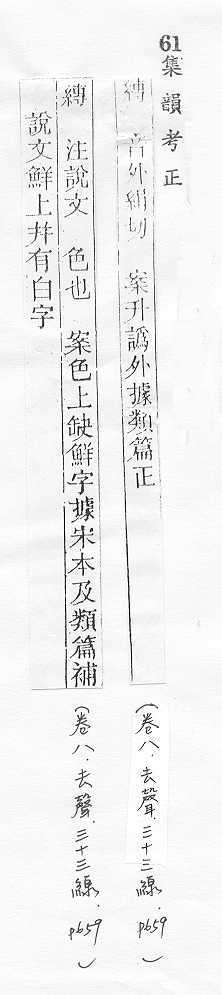 61集韻考正
縳 音外絹切 案升譌外據類篇正
(卷八.去聲.三十三線.p659)
縳 注說文 色也 案色上缺鮮字據宋本及類篇補
說文鮮上并有白字
(卷八.去聲.三十三線.p659)